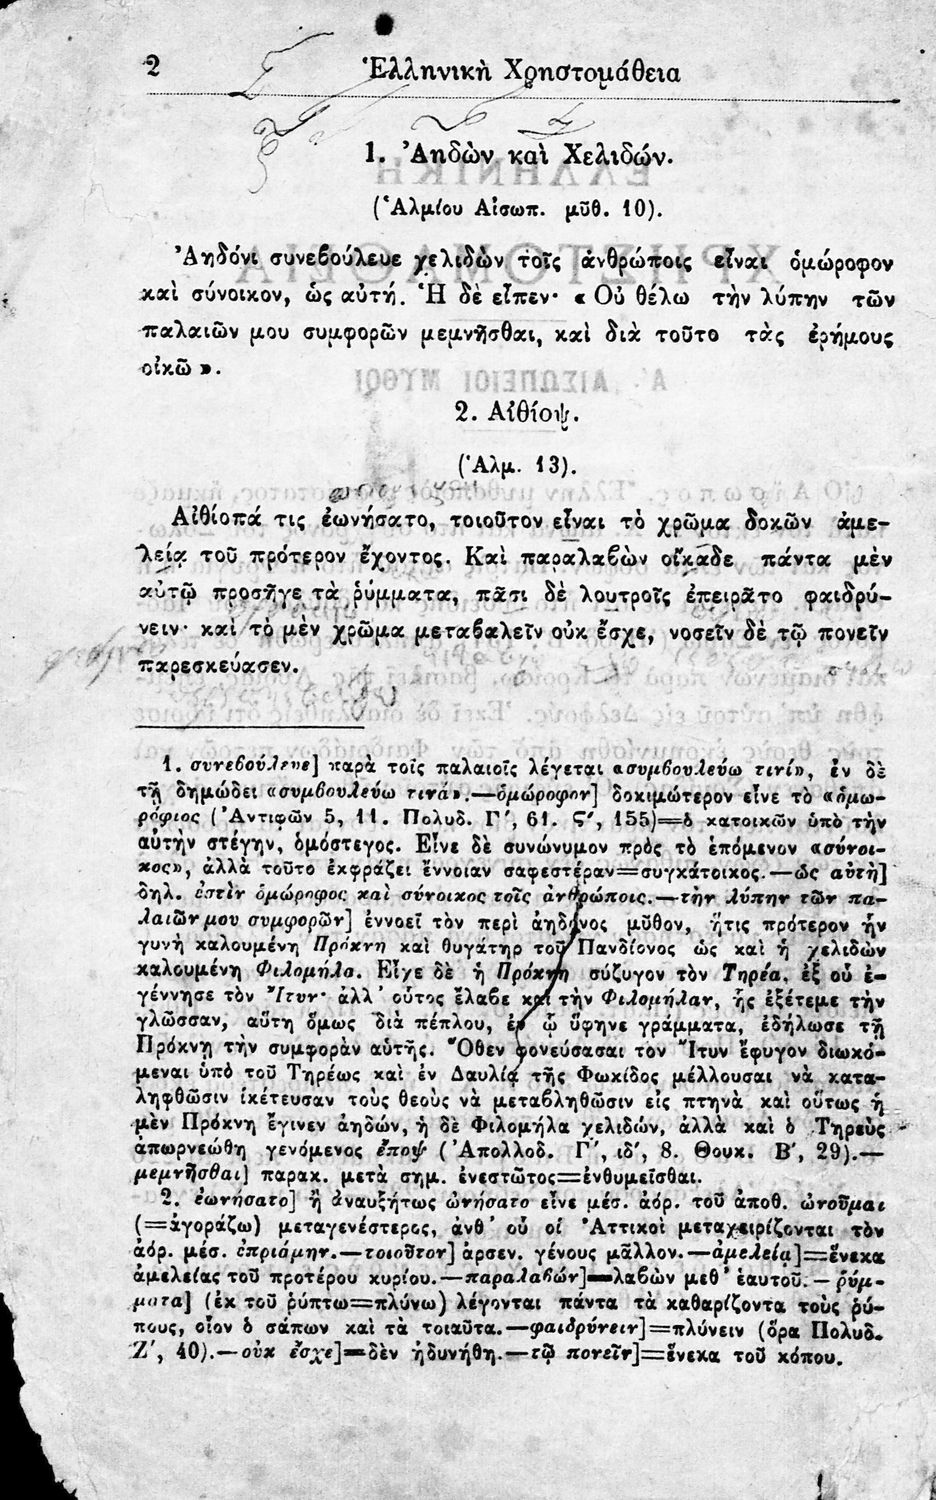 2
Ἑλληνικὴ Χρηστομάθεια
1. Ἀηδὼν καὶ Χελιδών.
(Ἁλμίου Αἰσωπ. μῦθ. 10).
Ἀηδόνι συνεβούλευε χελιδὼν τοῖς ἀνθρώποις εἶναι ὁμώροφον
καὶ σύνοικον, ὡς αὐτή. Ἡ δὲ εἶπεν· « Οὐ θέλω τὴν λύπην τῶν
παλαιῶν μου συμφορῶν μεμνῆσθαι, καὶ διὰ τοῦτο τὰς ἐρήμους
οἰκῶ ».
2. Αἰθίοψ.
(Ἁλμ. 13).
Αἰθίοπά τις ἐωνήσατο, τοιοῦτον εἶναι τὸ χρῶμα δοκῶν ἀμε-
λείᾳ τοῦ πρότερον ἔχοντος. Καὶ παραλαβὼν οἴκαδε πάντα μὲν
αὐτῷ προσῆγε τὰ ῥύμματα, πᾶσι δὲ λουτροῖς ἐπειρᾶτο φαιδρύ-
νειν· καὶ τὸ μὲν χρῶμα μεταβαλεῖν οὐκ ἔσχε, νοσεῖν δὲ τῷ πονεῖν
παρεσκεύασεν.
1. συνεβούλευε] παρὰ τοῖς παλαιοῖς λέγεται «συμβουλεύω τινί», ἐν δὲ
τῇ δημώδει «συμβουλεύω τινά».—ὁμώροφον] δοκιμώτερον εἶνε τὸ «ὁμω-
ρόφιος (Ἀντιφῶν 5, 11. Πολυδ. Γ′, 61. Ϛ′, 155)=ὁ κατοικῶν ὑπὸ τὴν
αὐτὴν στέγην, ὁμόστεγος. Εἶνε δὲ συνώνυμον πρὸς τὸ ἑπόμενον «σύνοι-
κος», ἀλλὰ τοῦτο ἐκφράζει ἔννοιαν σαφεστέραν=συγκάτοικος.—ὡς αὐτὴ]
δηλ. ἐστὶν ὁμώροφος καὶ σύνοικος τοῖς ἀνθρώποις.—τὴν λύπην τῶν πα-
λαιῶν μου συμφορῶν] ἐννοεῖ τὸν περὶ ἀηδόνος μῦθον, ἥτις πρότερον ἦν
γυνὴ καλουμένη Πρόκνη καὶ θυγάτηρ τοῦ Πανδίονος ὡς καὶ ἡ χελιδὼν
καλουμένη Φιλομήλα. Εἶχε δὲ ἡ Πρόκνη σύζυγον τὸν Τηρέα, ἐξ οὗ ἐ-
γέννησε τὸν Ἴτυν· ἀλλ' οὗτος ἔλαβε καὶ τὴν Φιλομήλαν, ἧς ἐξέτεμε τὴν
γλῶσσαν, αὕτη ὅμως διὰ πέπλου, ἐν ᾧ ὕφηνε γράμματα, ἐδήλωσε τῇ
Πρόκνῃ τὴν συμφορὰν αὑτῆς. Ὅθεν φονεύσασαι τὸν Ἴτυν ἔφυγον διωκό-
μεναι ὑπὸ τοῦ Τηρέως καὶ ἐν Δαυλίᾳ τῆς Φωκίδος μέλλουσαι νὰ κατα-
ληφθῶσιν ἱκέτευσαν τοὺς θεοὺς νὰ μεταβληθῶσιν εἰς πτηνὰ καὶ οὕτως ἡ
μὲν Πρόκνη ἔγινεν ἀηδών, ἡ δὲ Φιλομήλα χελιδών, ἀλλὰ καὶ ὁ Τηρεὺς
ἀπωρνεώθη γενόμενος ἔποψ (Ἀπολλοδ. Γ′, ιδ′, 8. Θουκ. Β′, 29).—
μεμνῆσθαι] παρακ. μετὰ σημ. ἐνεστῶτος=ἐνθυμεῖσθαι.
2. ἐωνήσατο] ἢ ἀναυξήτως ὠνήσατο εἶνε μέσ. ἀόρ. τοῦ ἀποθ. ὠνοῦμαι
(=ἀγοράζω) μεταγενέστερος, ἀνθ' οὗ οἱ Ἀττικοὶ μεταχειρίζονται τὸν
ἀόρ. μέσ. ἐπριάμην.—τοιοῦτον] ἀρσεν. γένους μᾶλλον.—ἀμελείᾳ]=ἕνεκα
ἀμελείας τοῦ προτέρου κυρίου.—παραλαβὼν]=λαβὼν μεθ' ἑαυτοῦ.—ῥύμ-
ματα] (ἐκ τοῦ ῥύπτω=πλύνω) λέγονται πάντα τὰ καθαρίζοντα τοὺς ῥύ-
πους, οἷον ὁ σάπων καὶ τὰ τοιαῦτα.—φαιδρύνειν]=πλύνειν (ὅρα Πολυδ.
Ζ′, 40).—οὐκ ἔσχε]=δὲν ἠδυνήθη.—τῷ πονεῖν]=ἕνεκα τοῦ κόπου.